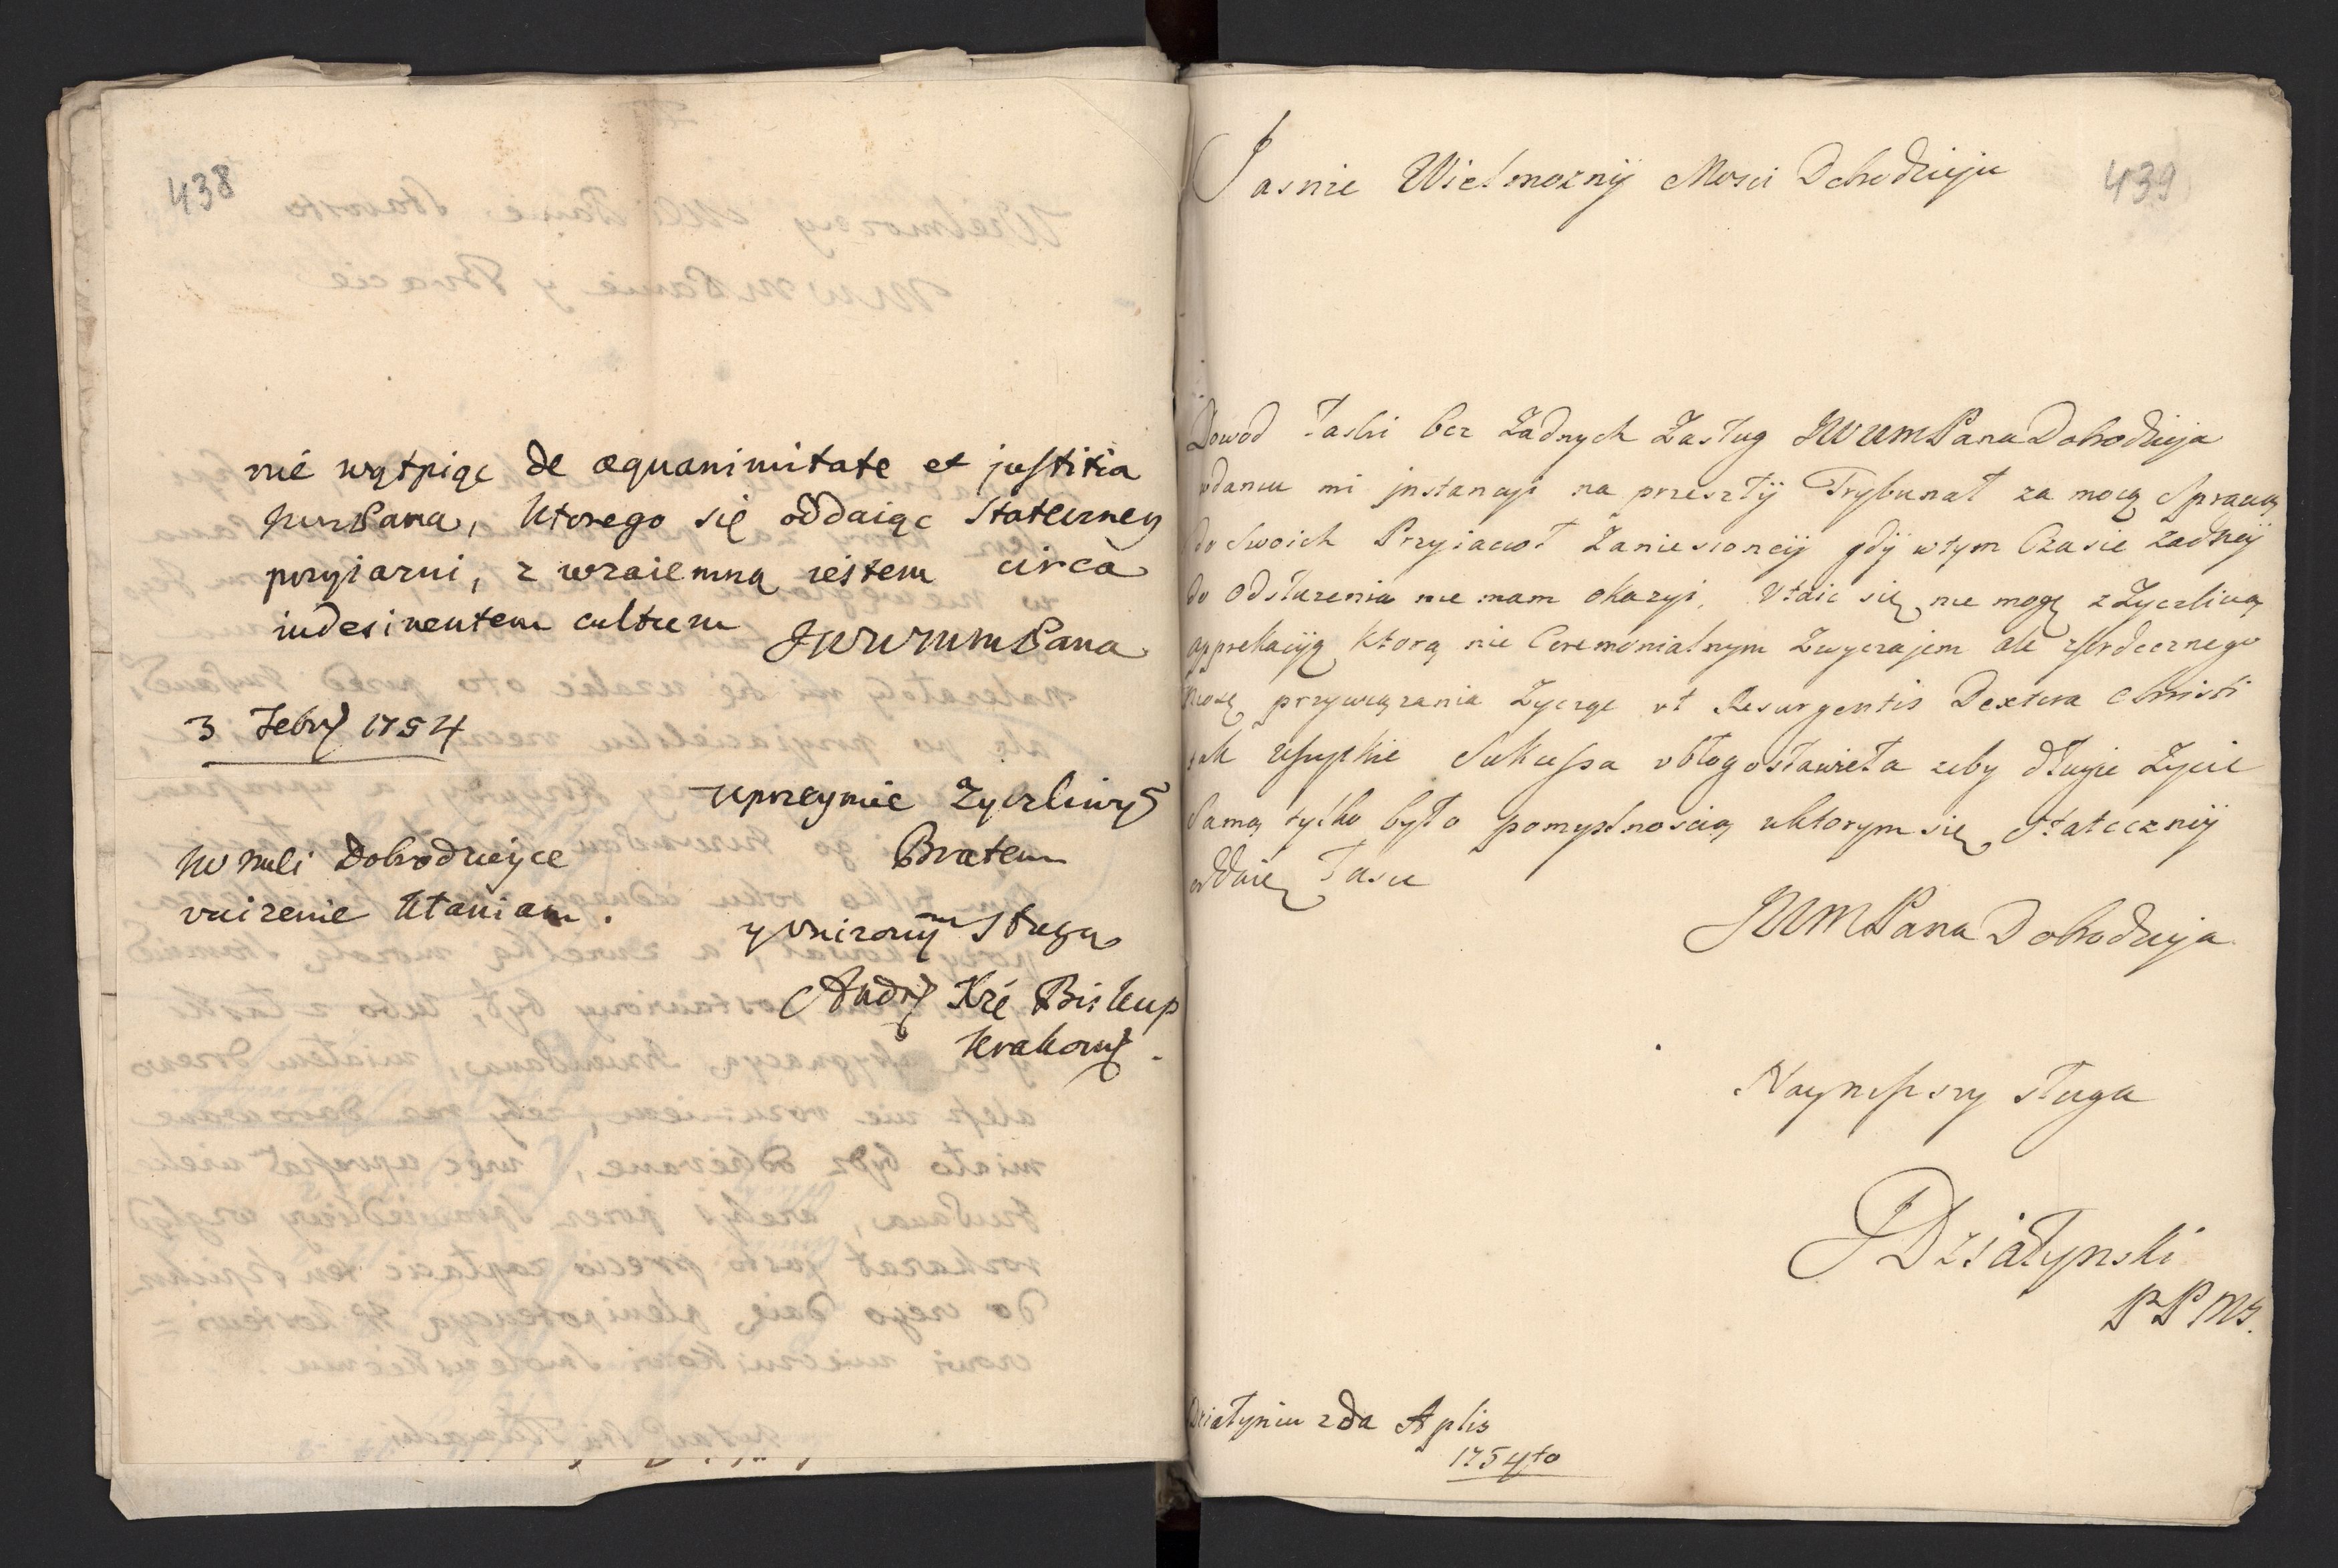 438
nie wątpiąc de æquanimitate et justitia
JwmPana, ktorego się oddaiąc Stateczney
przyiazni, z wzaiemną iestem circa
indesinentem cultum
JWWMMPana
3 Febry 1754
uprzeymie Zyczliwy
Bratem
JW Meli Dobrodzieyce
unizenie kłaniam.
y uniżonym Sługą
Andrz Xże Biskup
Krakows
439
Jasnie Wielmoznÿ Mosci Dobrodzieju
Dowod łaski bez żadnych Zasług JWWMPana Dobrodzieja
wdaniu mi jnstancyi na przeszłÿ Trybunał za mocą Sprawą
do Swoich Przyiacioł Zaniesionęÿ gdÿ wtym Czasie zadneÿ
do odsłuzenia nie mam okazyi, Utaić się nie mogę z Zyczliwą
apprekacÿą ktorą nie Ceremonialnym Zwyczajem ale zserdecznego
niosę przywiązania Zycząc ut Resurgentis Dextera Christi
tak wszystkie Sukcessa ubłogosławieła zeby długie Zycie
Samą tylko było pomyslnoscią wktorym się Statecznÿ
oddaię łasce
JWMPana Dobrodzieja
Nayniższy sługa
JDziałynski
PPMS.
Działyniu 2da Aplis
1754to